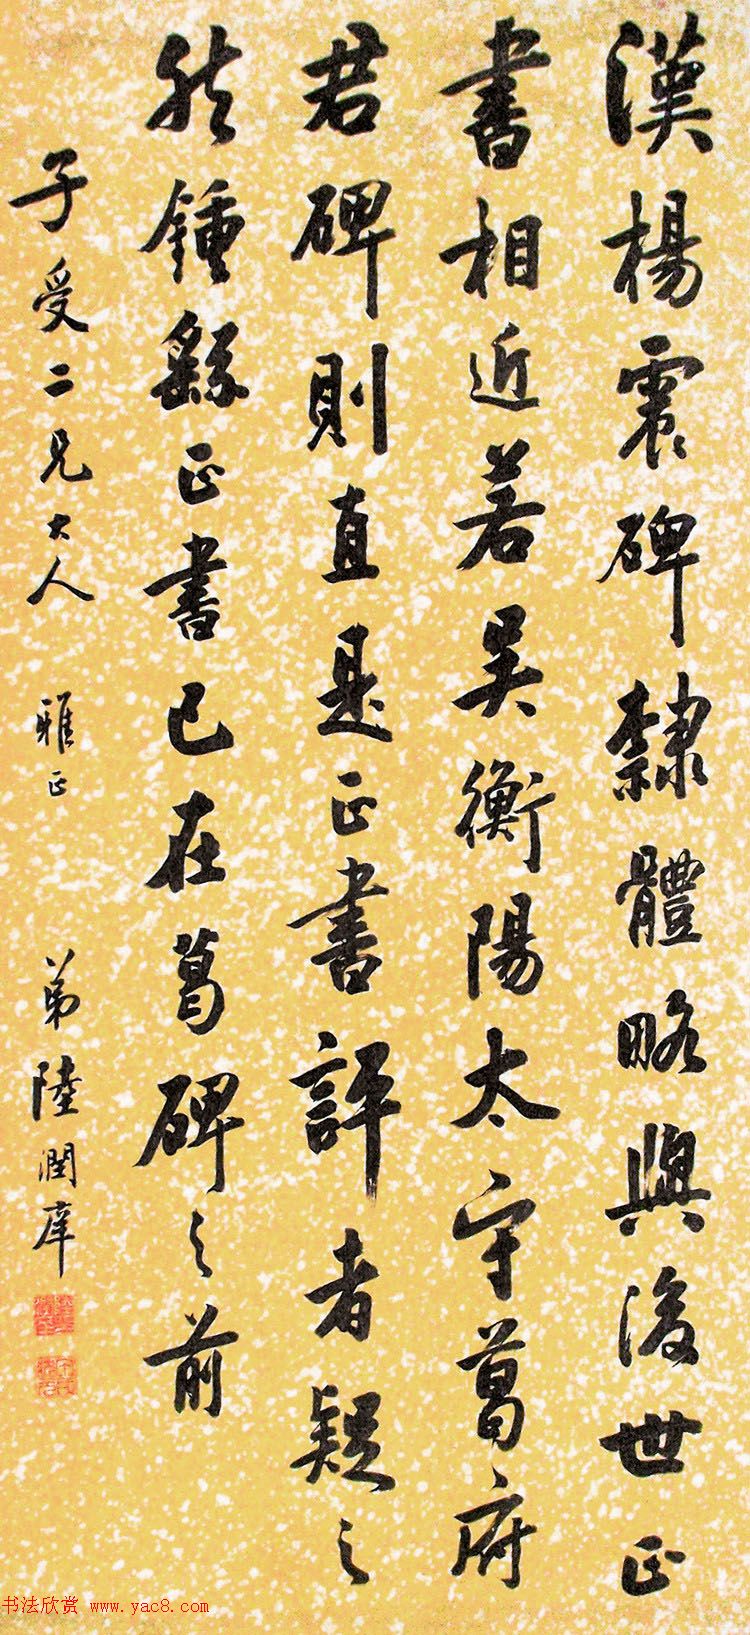 漢楊震碑隸體略與後世正
書相近若吴衡陽太守葛府
君碑則直是正書評者疑之
然鍾繇正書已在葛碑之前
子受二兄大人 雅正 弟陸潤庠
书法欣赏 www.yac8.com